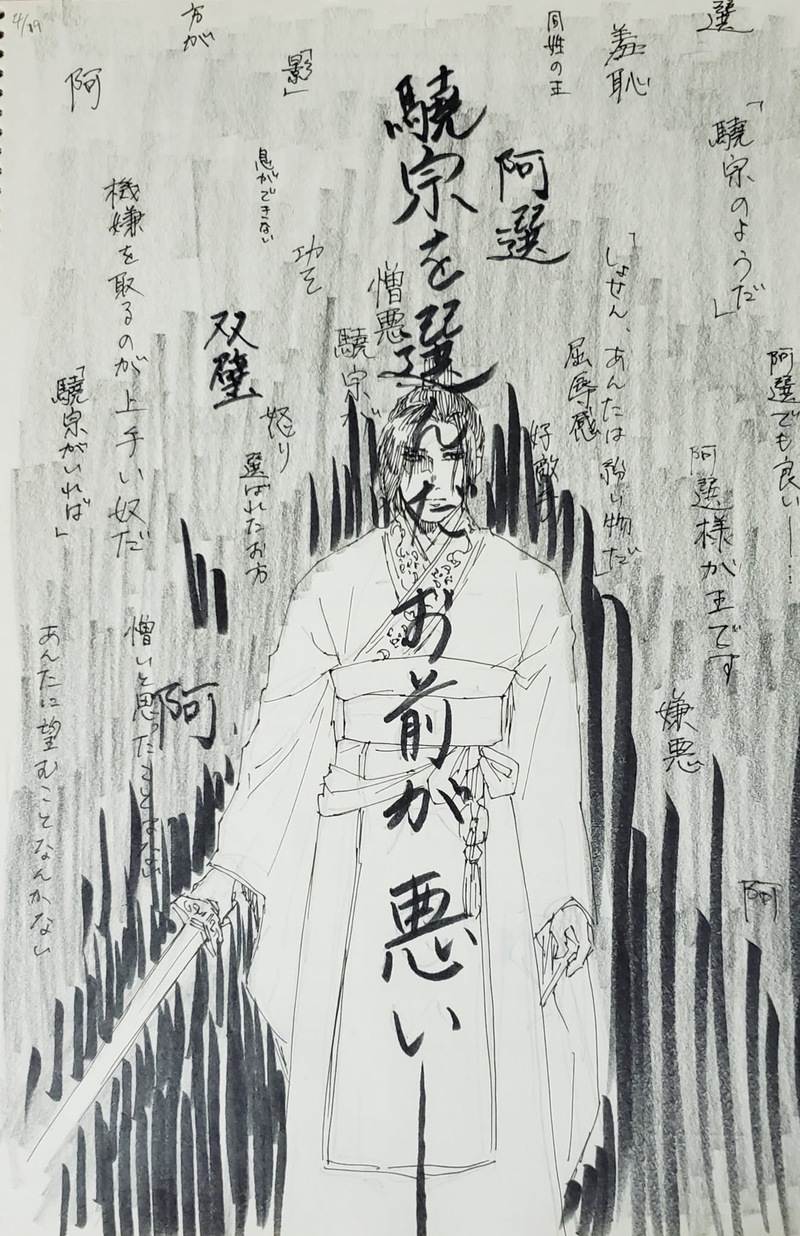 選
「驍宗のようだ」
阿選でも良い――…
羞恥
阿選様が王です
嫌悪
阿
同姓の王
「しょせん、あんたは紛い物だ」
屈辱感
阿選
好敵手
驍宗を選んだお前が悪い――
憎悪
驍宗が
「影」
功を
息ができない
怒り
選ばれたお方
双璧
方が
阿
機嫌を取るのが上手い奴だ
憎いと思ったことはない
阿
「驍宗がいれば」
あんたに望むことなんかない
4/19